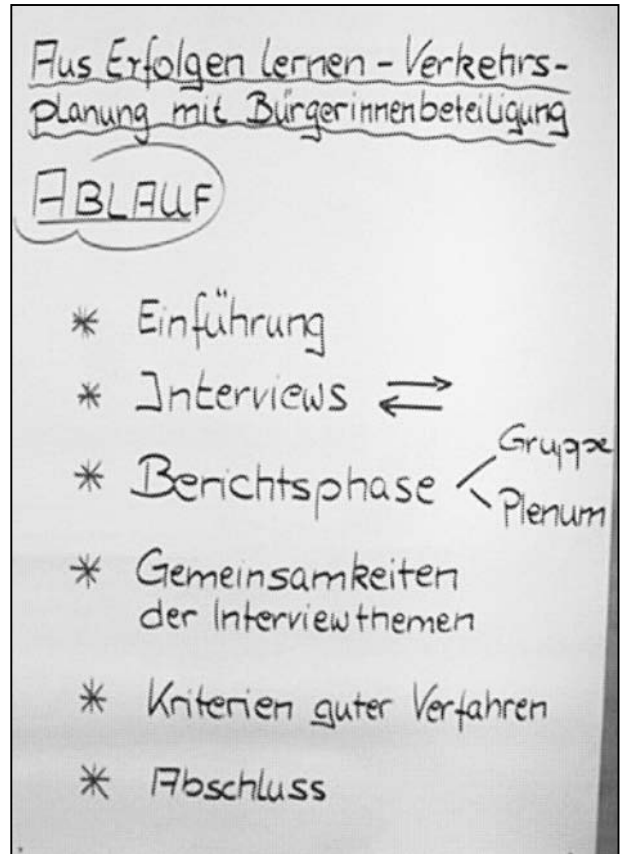 Aus Erfolgen lernen - Verkehrs-
planung mit Bürgerinnenbeteiligung
ABLAUF
* Einführung
* Interviews ⇄
* Berichtsphase
Gruppe
Plenum
* Gemeinsamkeiten
der Interviewthemen
* Kriterien guter Verfahren
* Abschluss